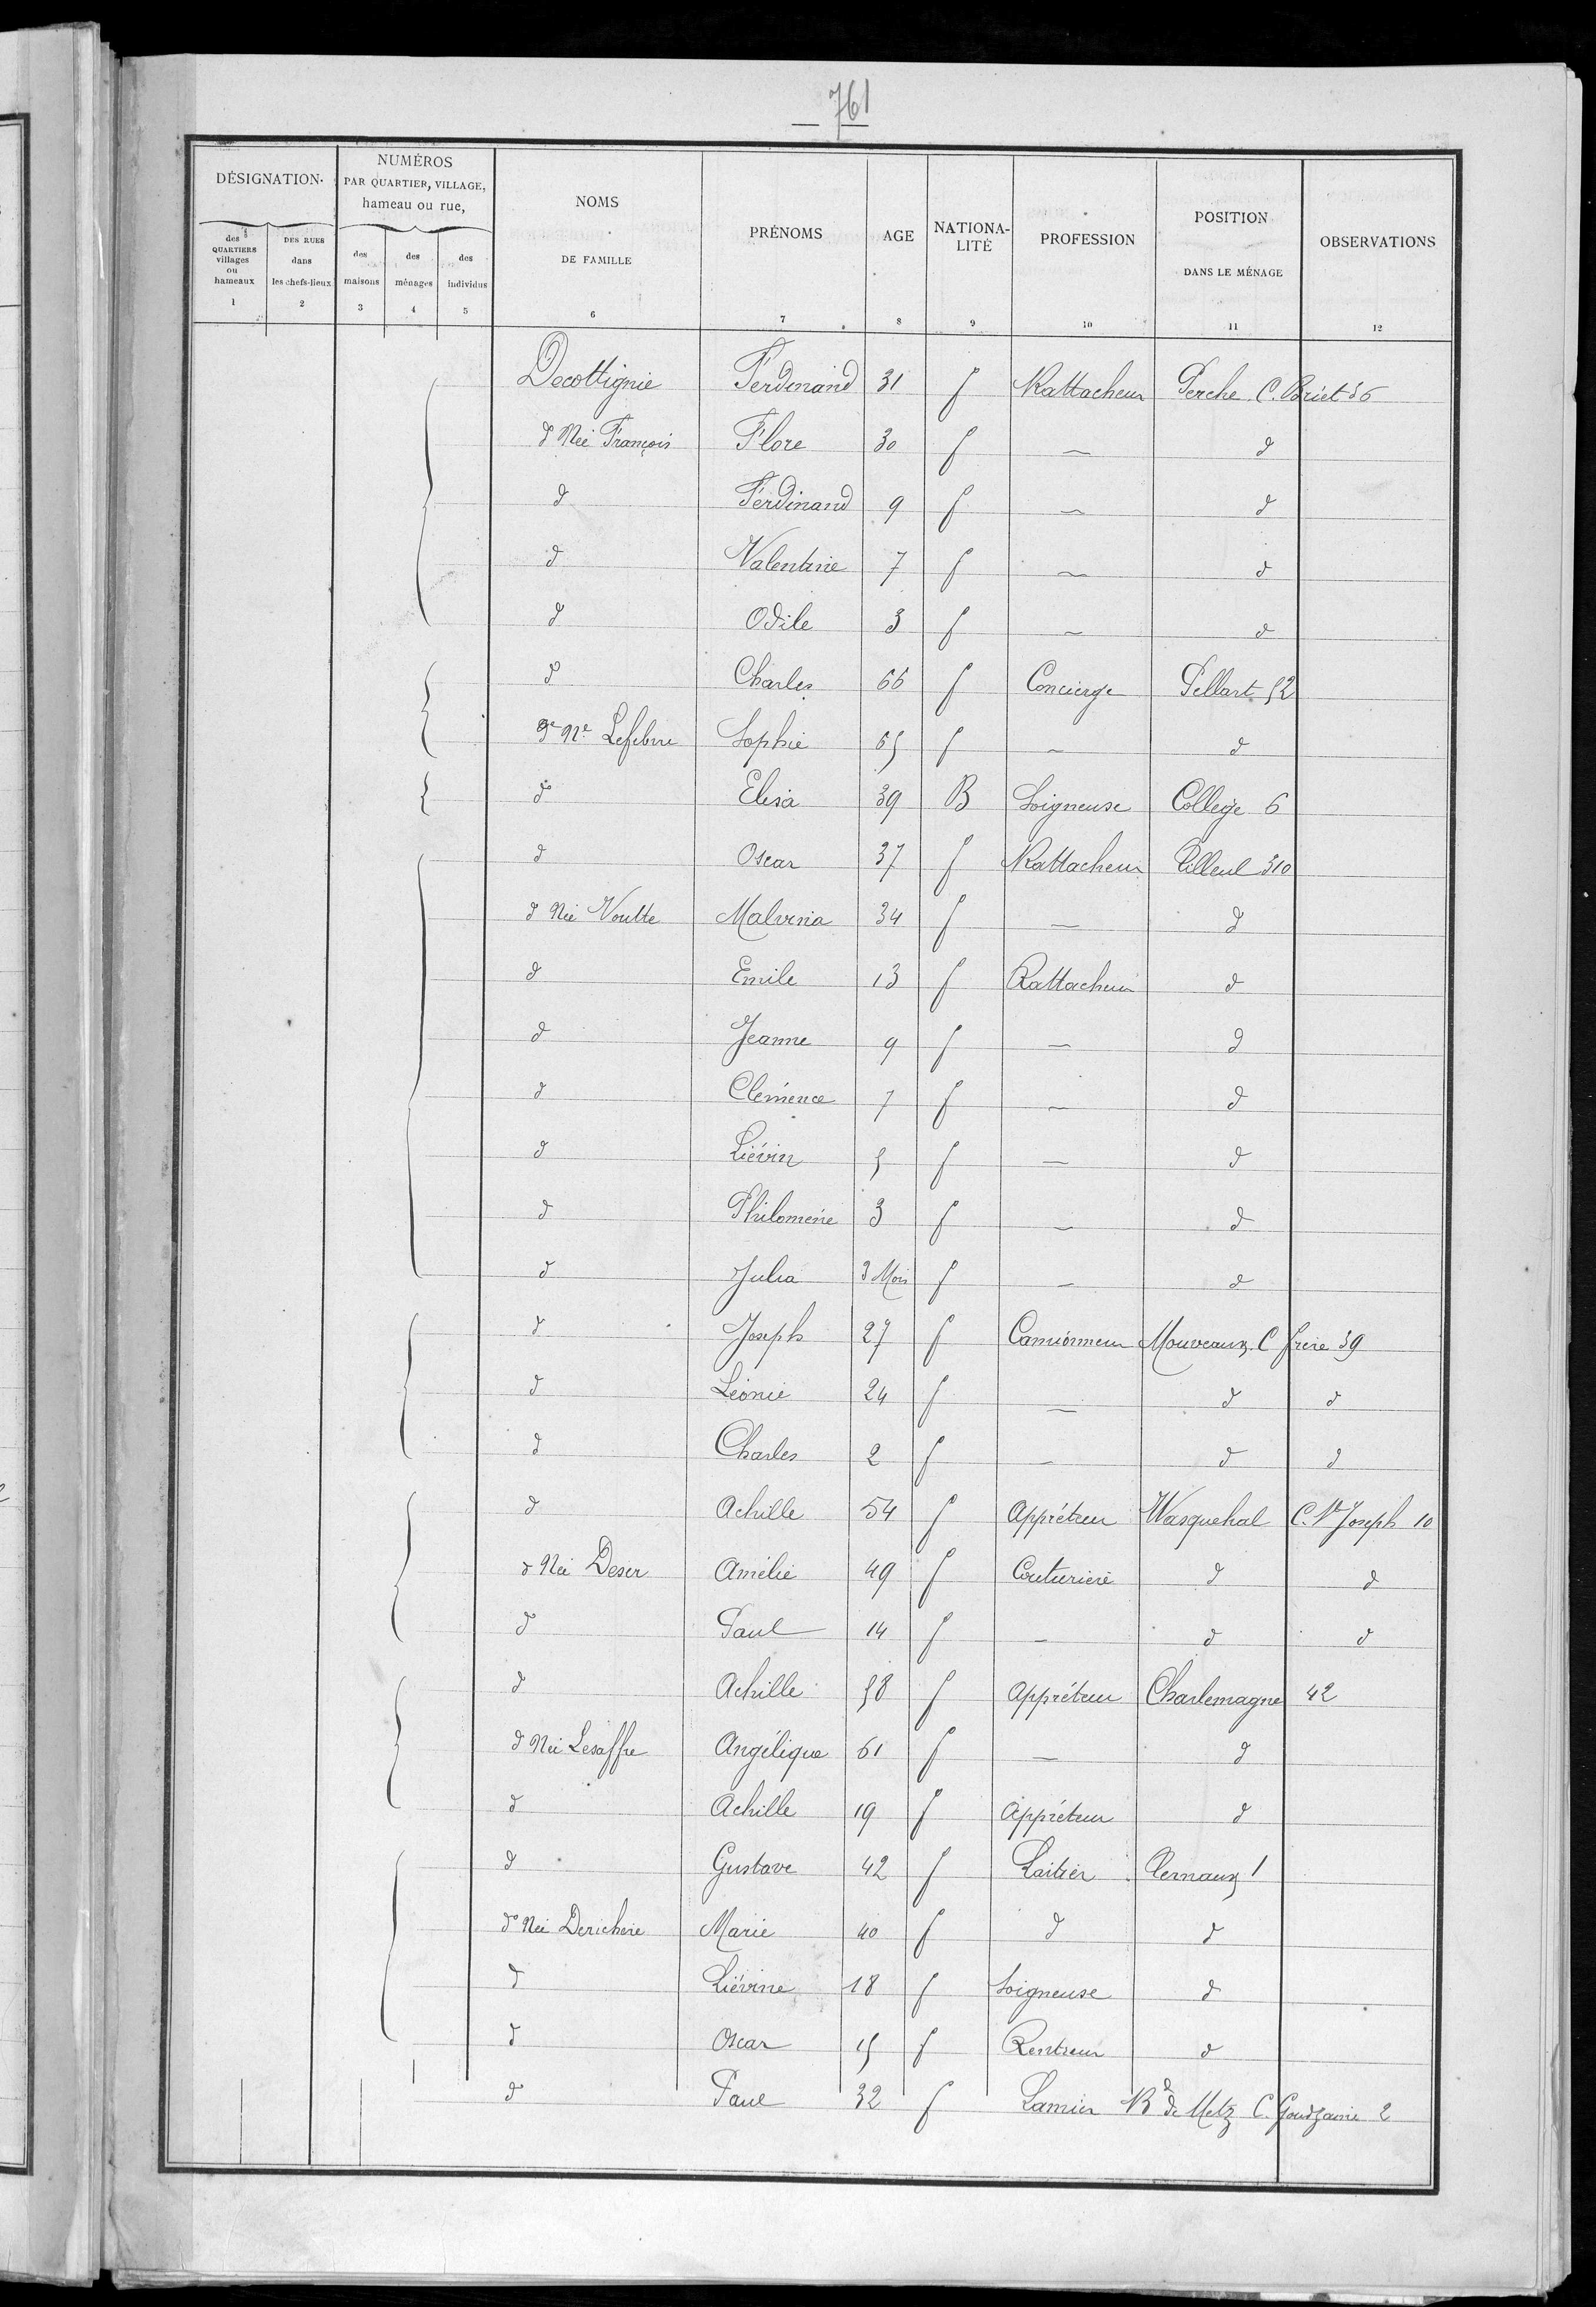 761
DÉSIGNATION
NUMÉROS PAR QUARTIER, VILLAGE, hameau ou rue,
NOMS DE FAMILLE
PRÉNOMS
AGE
NATIONALITÉ
PROFESSION
POSITION DANS LE MÉNAGE
OBSERVATIONS
des QUARTIERS villages ou hameaux
DES RUES dans les chefs-lieux
des maisons
des ménages
des individus
1 2 3 4 5 6 7 8 9 10 11 12
Decottignie Ferdinand 31 f Rattacheur Perche C. Briet 36
d Née François Flore 30 f — d
d Ferdinand 9 f — d
d Valentine 7 f — d
d Odile 3 f — d
d° Charles 66 f Concierge Pellart 52
de Née Lefebvre Sophie 65 f — d
d° Elisa 39 B Soigneuse Collège 6
d Oscar 37 f Rattacheur Tilleul 310
d Née Voutte Malvina 34 f — d
d Emile 13 f Rattacheur d
d Jeanne 9 f — d
d Clémence 7 f — d
d Liévin 5 f — d
d Philomène 3 f — d
d Julia 3 Mois f — d
d Joseph 27 f Camionneur Mouveaux C frère 39
d Léonie 24 f — d d
d Charles 2 f — d d
d Achille 54 f Appréteur Wasquehal C. St Joseph 10
d Née Deser Amélie 49 f Couturière d d
d Paul 14 f — d d
d Achille 58 f Appréteur Charlemagne 42
d Née Lesaffre Angélique 61 f — d
d Achille 19 f Appréteur d
d Gustave 42 f Laitier Ternaux 1
d° Née Marie 40 f d d
d Liévine 18 f Soigneuse d
d Oscar 15 f Rentreur d
d Paul 32 f Lamier Bd de Metz C. 2